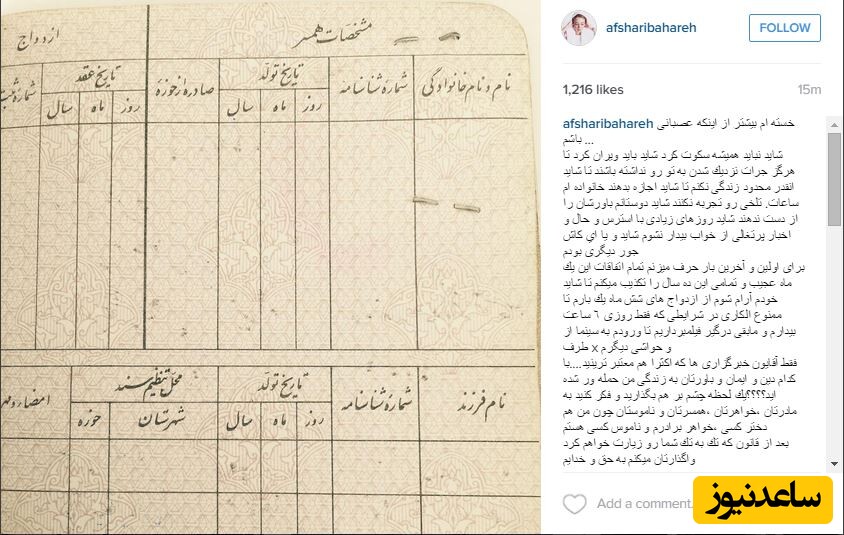 مشخصات همسر
ازدواج
نام و نام خانوادگی
شمارهٔ شناسنامه
تاریخ تولد
روز
ماه
سال
صادره از حوزه
تاریخ عقد
روز
ماه
سال
نام فرزند
شمارهٔ شناسنامه
تاریخ تولد
روز
ماه
سال
محل تنظیم سند
شهرستان
حوزه
afsharibahareh
FOLLOW
1,216 likes
15m
afsharibahareh خسته ام بیشتر از اینکه عصبانی
باشم ...
شاید نباید همیشه سکوت کرد شاید باید ویران کرد تا
هرگز جرات نزدیك شدن به تو رو نداشته باشند تا شاید
انقدر محدود زندگی نکنم تا شاید اجازه بدهند خانواده ام
ساعات. تلخی رو تجربه نکنند شاید دوستانم باورشان را
از دست ندهند شاید روزهای زیادی با استرس و حال و
اخبار پرتغالی از خواب بیدار نشوم شاید و یا اي کاش
جور دیگری بودم
برای اولین و آخرین بار حرف میزنم تمام اتفاقات این یك
ماه عجیب و تمامی این ده سال را تکذیب میکنم تا شاید
خودم آرام شوم از ازدواج های شش ماه یك بارم تا
ممنوع الکاری در شرایطی که فقط روزی ٦ ساعت
بیدارم و مابقی درگیر فیلمبرداریم تا ورودم به سینما از
طرف x و حواشی دیگرم
فقط آقایون خبرگزاری ها که اکثرا هم معتبر ترینید....با
کدام دین و ایمان و باورتان به زندگی من حمله ور شده
اید؟؟؟؟یك لحظه چشم بر هم بگذارید و فکر کنید به
مادرتان ،خواهرتان ،همسرتان و ناموستان چون من هم
دختر کسی ،خواهر برادرم و ناموس کسی هستم
بعد از قانون که تك به تك شما رو زیارت خواهم کرد
واگذارتان میکنم به حق و خدایم
Add a comment
ساعدنیوز